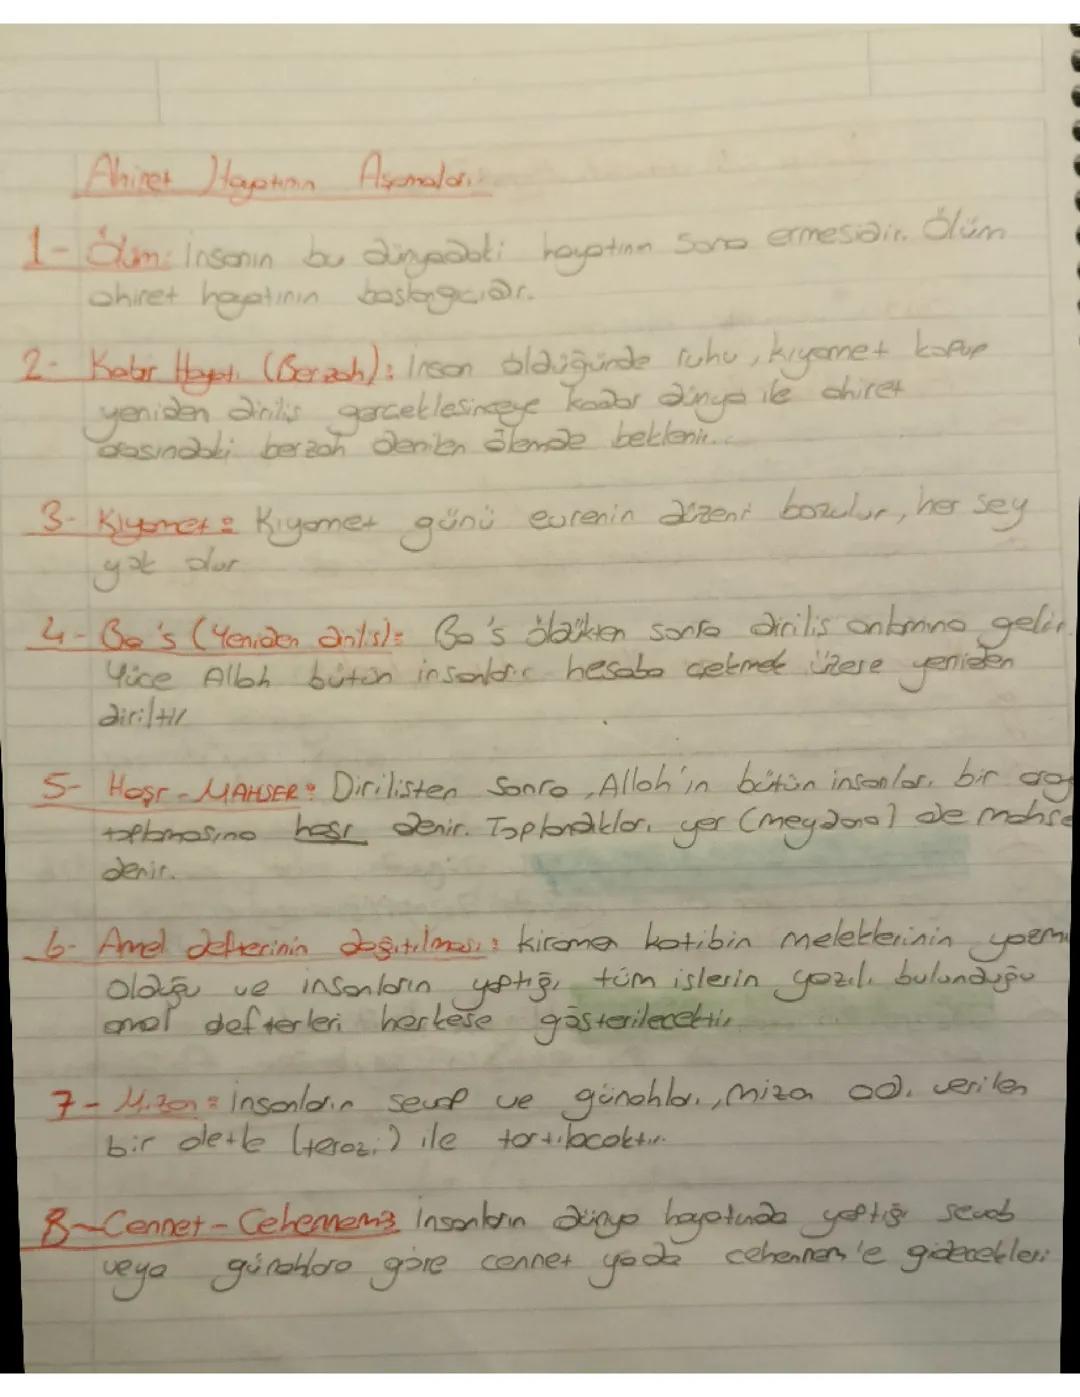 Ahiret Hayatının Aşamaları
1- Ölüm: İnsanın bu dünyadaki hayatının sona ermesidir. Ölüm
ahiret hayatının baslangıcıdır.
2- Kabir Hayatı (Berzah): İnsan öldüğünde ruhu, kıyamet kopup
yeniden diriliş gerceklesinceye kadar dünya ile ahiret
arasındaki berzah denilen âlemde beklenir...
3- Kıyamet: Kıyamet günü evrenin düzeni bozulur, her sey
yok olur
4- Ba's (Yeniden diriliş): Ba's öldükten sonra dirilis anlamına gelir.
Yüce Allah bütün insanları hesaba çekmek üzere yeniden
diriltir
5- Haşr - MAHSER: Dirilisten sonra, Allah'ın bütün insanları bir ara
toplamasına haşr denir. Toplandıkları yer (meydana) de mahse
denir.
6- Amel defterinin dağıtılması: kiramen katibin meleklerinin yazmı
olduğu ve insanların yaptığı tüm işlerin yazılı bulunduğu
amel defterleri herkese gösterilecektir
7- Mizan: İnsanların sevap ve günahları, miza adı verilen
bir aletle (terazi) ile tartılacaktır.
8- Cennet - Cehennem: İnsanların dünya hayatında yaptığı sevab
veya günahlara göre cennet yada cehennem'e gidecekleri